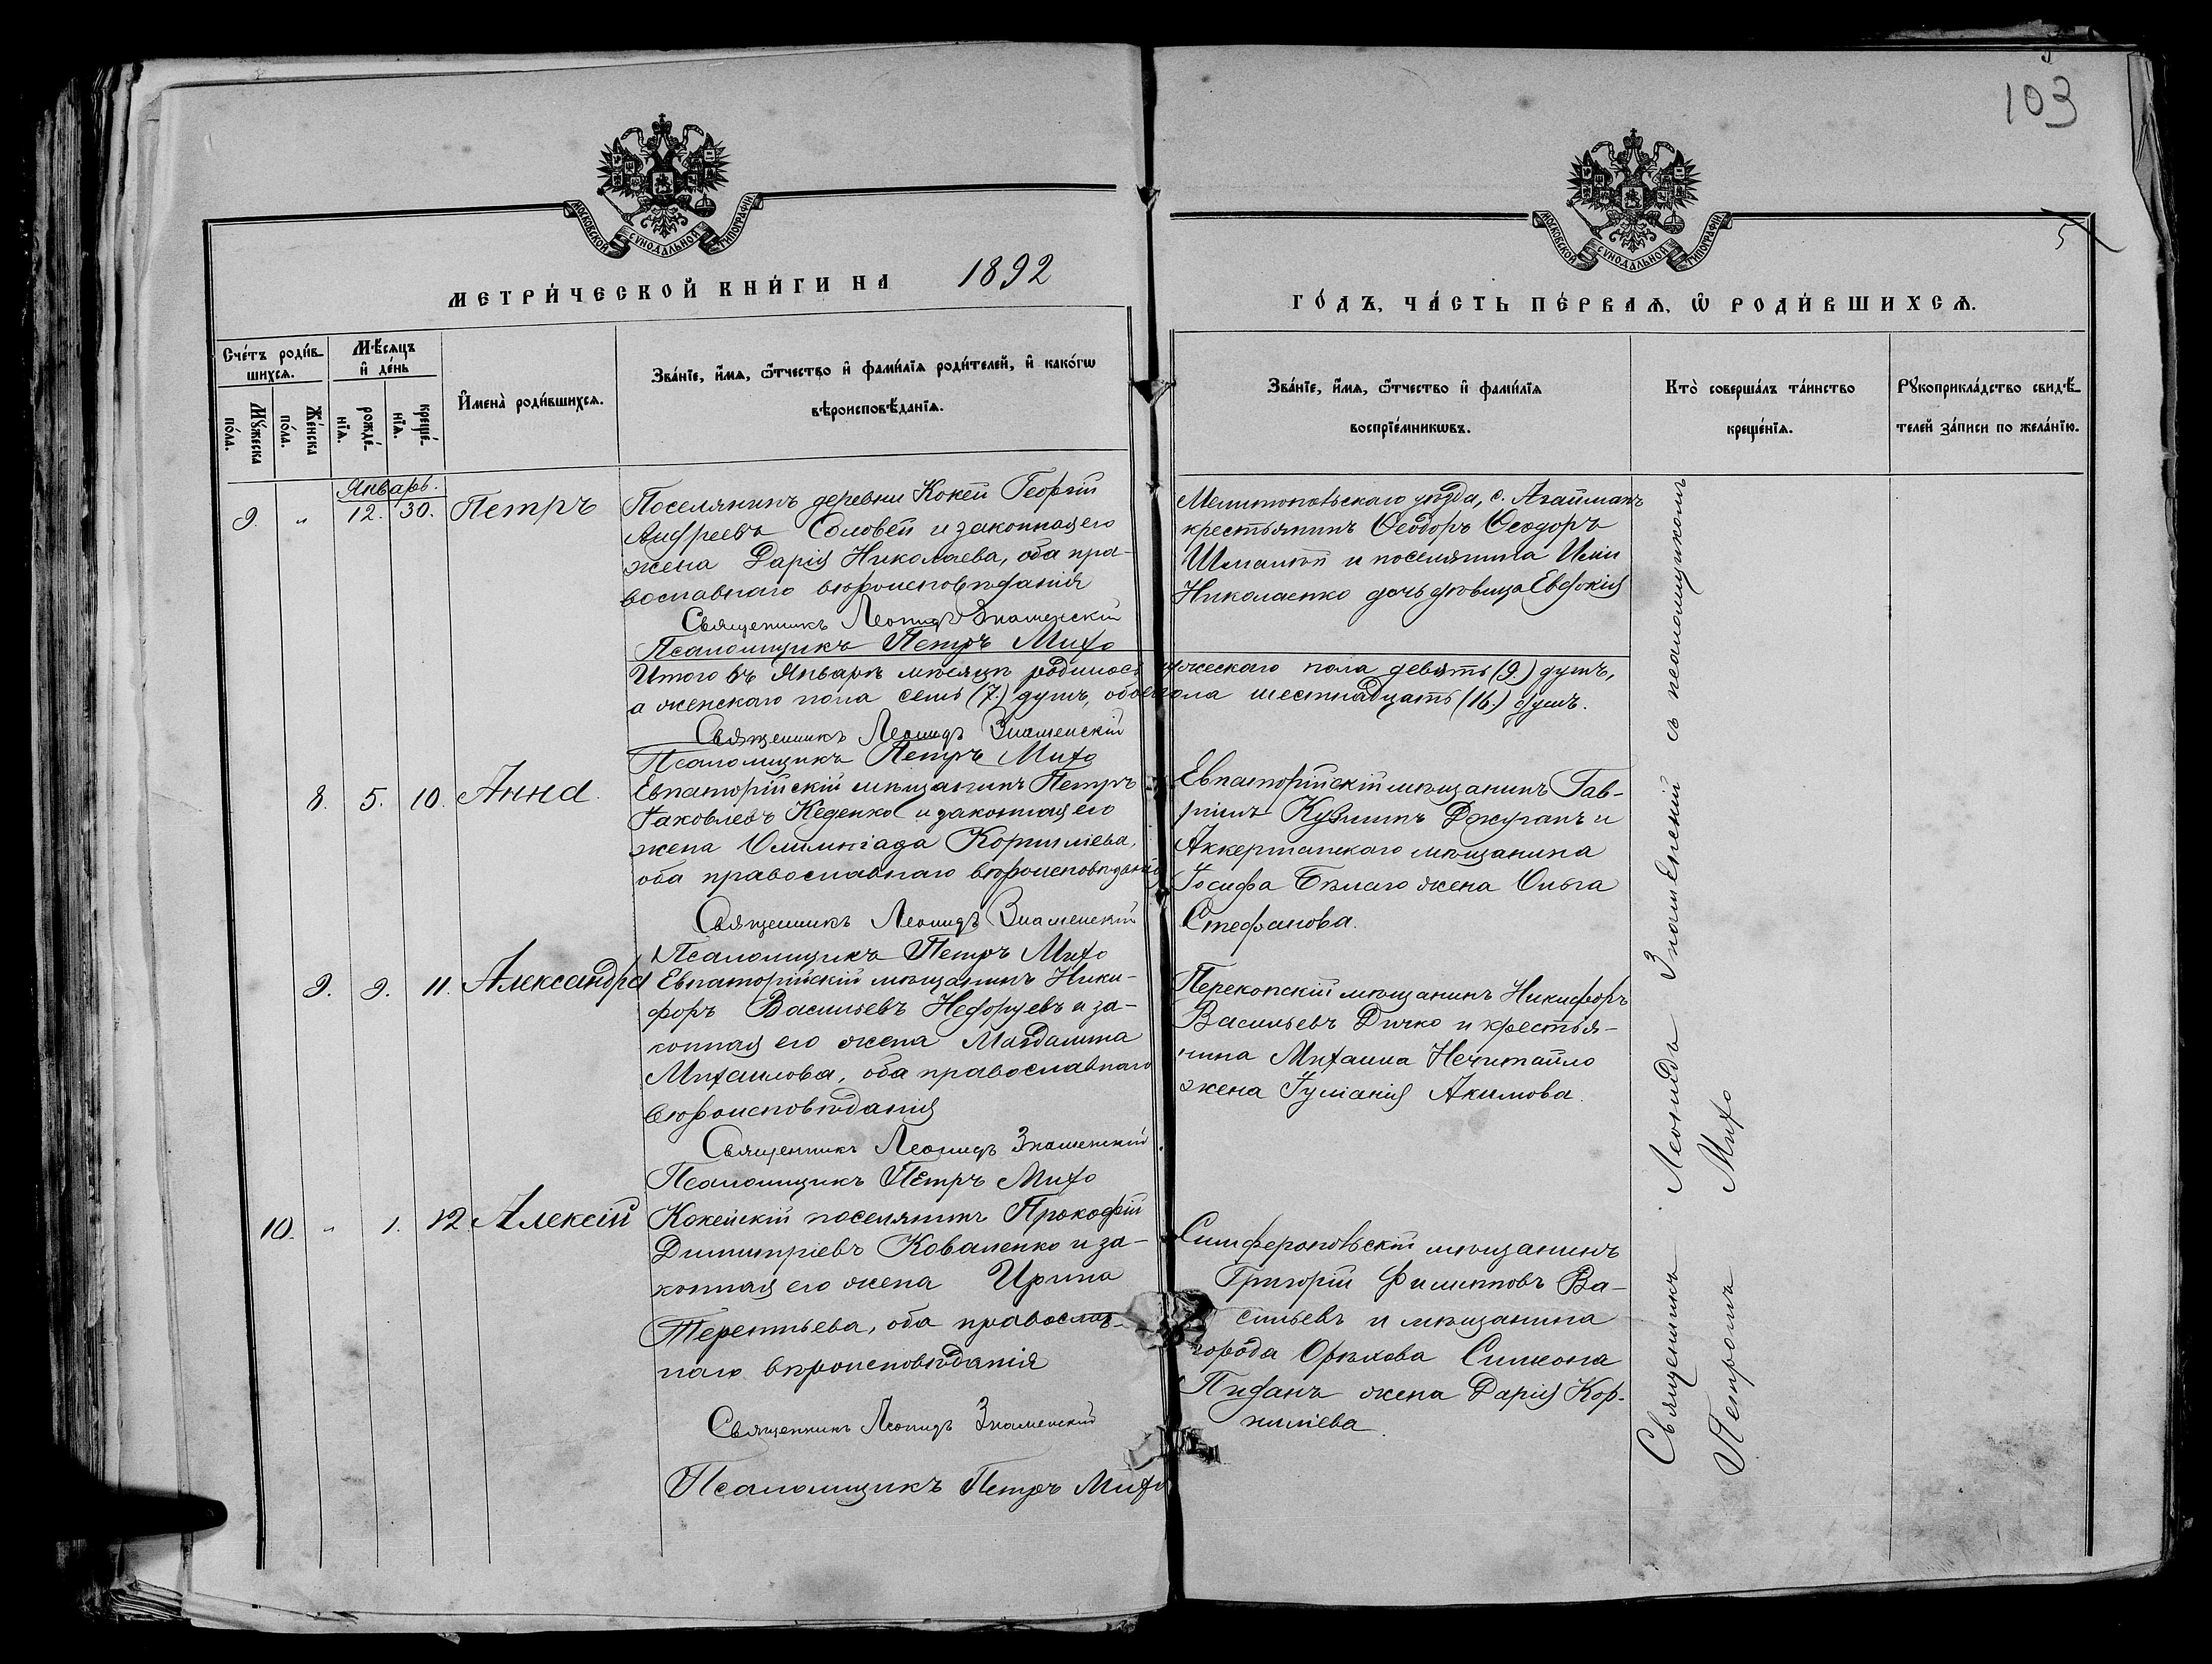 103
5
МОСКОВСКОЙ СѴНОДАЛЬНОЙ ТИПОГРАФІИ
МОСКОВСКОЙ СѴНОДАЛЬНОЙ ТИПОГРАФІИ
МЕТРИ́ЧЕСКОЙ КНИ́ГИ НА 1892
ГО́ДЪ, ЧА́СТЬ ПЕ́РВАѦ, Ѿ РОДИ́ВШИХСѦ.
Сче́тъ роди́в-
шихсѧ.
Мѣ́сѧцъ
и҆ де́нь
Мꙋ́жеска
по́ла.
Же́нска
по́ла.
рожде́-
нїѧ.
креще́-
нїѧ.
И҆мена̀ роди́вшихсѧ.
Зва́нїе, и҆́мѧ, ѻ҆́тчество и҆ фами́лїѧ роди́телей, и҆ како́гѡ
вѣроисповѣ́данїѧ.
Зва́нїе, и҆́мѧ, ѻ҆́тчество и҆ фами́лїѧ
воспрїе́мникѡвъ.
Кто̀ соверша́лъ та́инство
креще́нїѧ.
Рꙋкоприкла́дство свидѣ́-
телей за́писи по жела́нїю.
Январь.
9. " 12. 30. Петръ
Поселянинъ деревни Кокей Георгій
Андреевъ Соловей и законная его
жена Дарія Николаева, оба пра-
вославнаго вѣроисповѣданія
Священникъ Леонидъ Знаменскій
Псаломщикъ Петръ Михо
Мелитопольскаго уѣзда, с. Агайманъ
крестьянинъ Ѳеодоръ Ѳеодоръ
и поселянина
Николаенко дочь дѣвица Евдокія
Итого въ Январѣ мѣсяцѣ родилось мужескаго пола девять (9.) душъ,
а женскаго пола семь (7.) душъ, обоего пола шестнадцать (16.) душъ.
Священникъ Леонидъ Знаменскій
Псаломщикъ Петръ Михо
8. 5. 10. Анна.
Евпаторійскій мѣщанинъ Петръ
Іаковлевъ Кеденко и законная его
жена Олимпіада Корниліева,
оба православнаго вѣроисповѣданія
Священникъ Леонидъ Знаменскій
Псаломщикъ Петръ Михо
Евпаторійскій мѣщанинъ Гав-
ріилъ Кузминъ Джуганъ и
Аккерманскаго мѣщанина
Іосифа Бѣлаго жена Ольга
Стефанова.
9. 9. 11. Александра
Евпаторійскій мѣщанинъ Ники-
форъ Васильевъ и за-
конная его жена Магдалина
Михаилова, оба православнаго
вѣроисповѣданія
Священникъ Леонидъ Знаменскій
Псаломщикъ Петръ Михо
Перекопскій мѣщанинъ Никифоръ
Васильевъ Дичко и крестья-
нина Михаила Нечитайло
жена Іуліанія Акимова.
10. " 1. 12 Алексій
Кокейскій поселянинъ Прокофій
Димитріевъ Коваленко и за-
конная его жена Ирина
Терентьева, оба православ-
наго вѣроисповѣданія
Священникъ Леонидъ Знаменскій
Псаломщикъ Петръ Михо
Симферопольскій мѣщанинъ
Григорій Филиповъ Ва-
сильевъ и мѣщанина
города Орѣхова Симеона
жена Дарія Кор-
ниліева.
Священникъ Леонидъ Знаменскій съ псаломщикомъ
Петромъ Михо